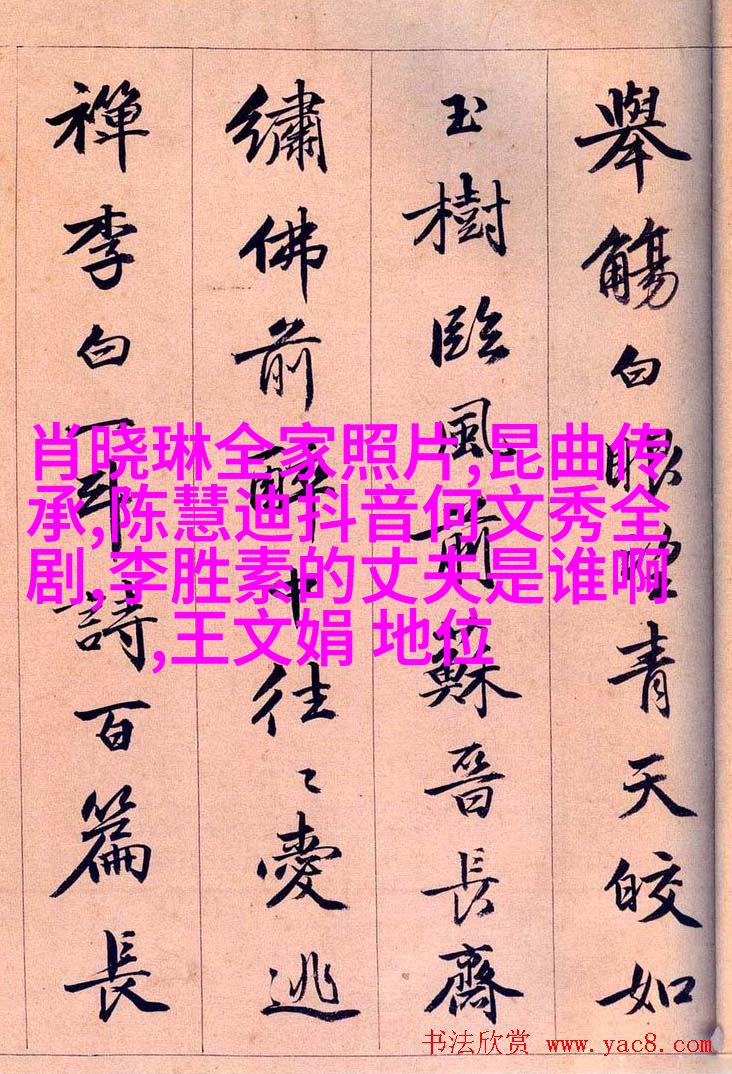 舉觴白眼望青天皎如
玉樹臨風前蘇晉長齋
繡佛前醉中往〻愛逃
禪李白一斗詩百篇長
肖晓琳全家照片,昆曲传
承,陈慧迪抖音何文秀全
剧,李胜素的丈夫是谁啊
,王文娟 地位
书法欣赏 www.yac8.com